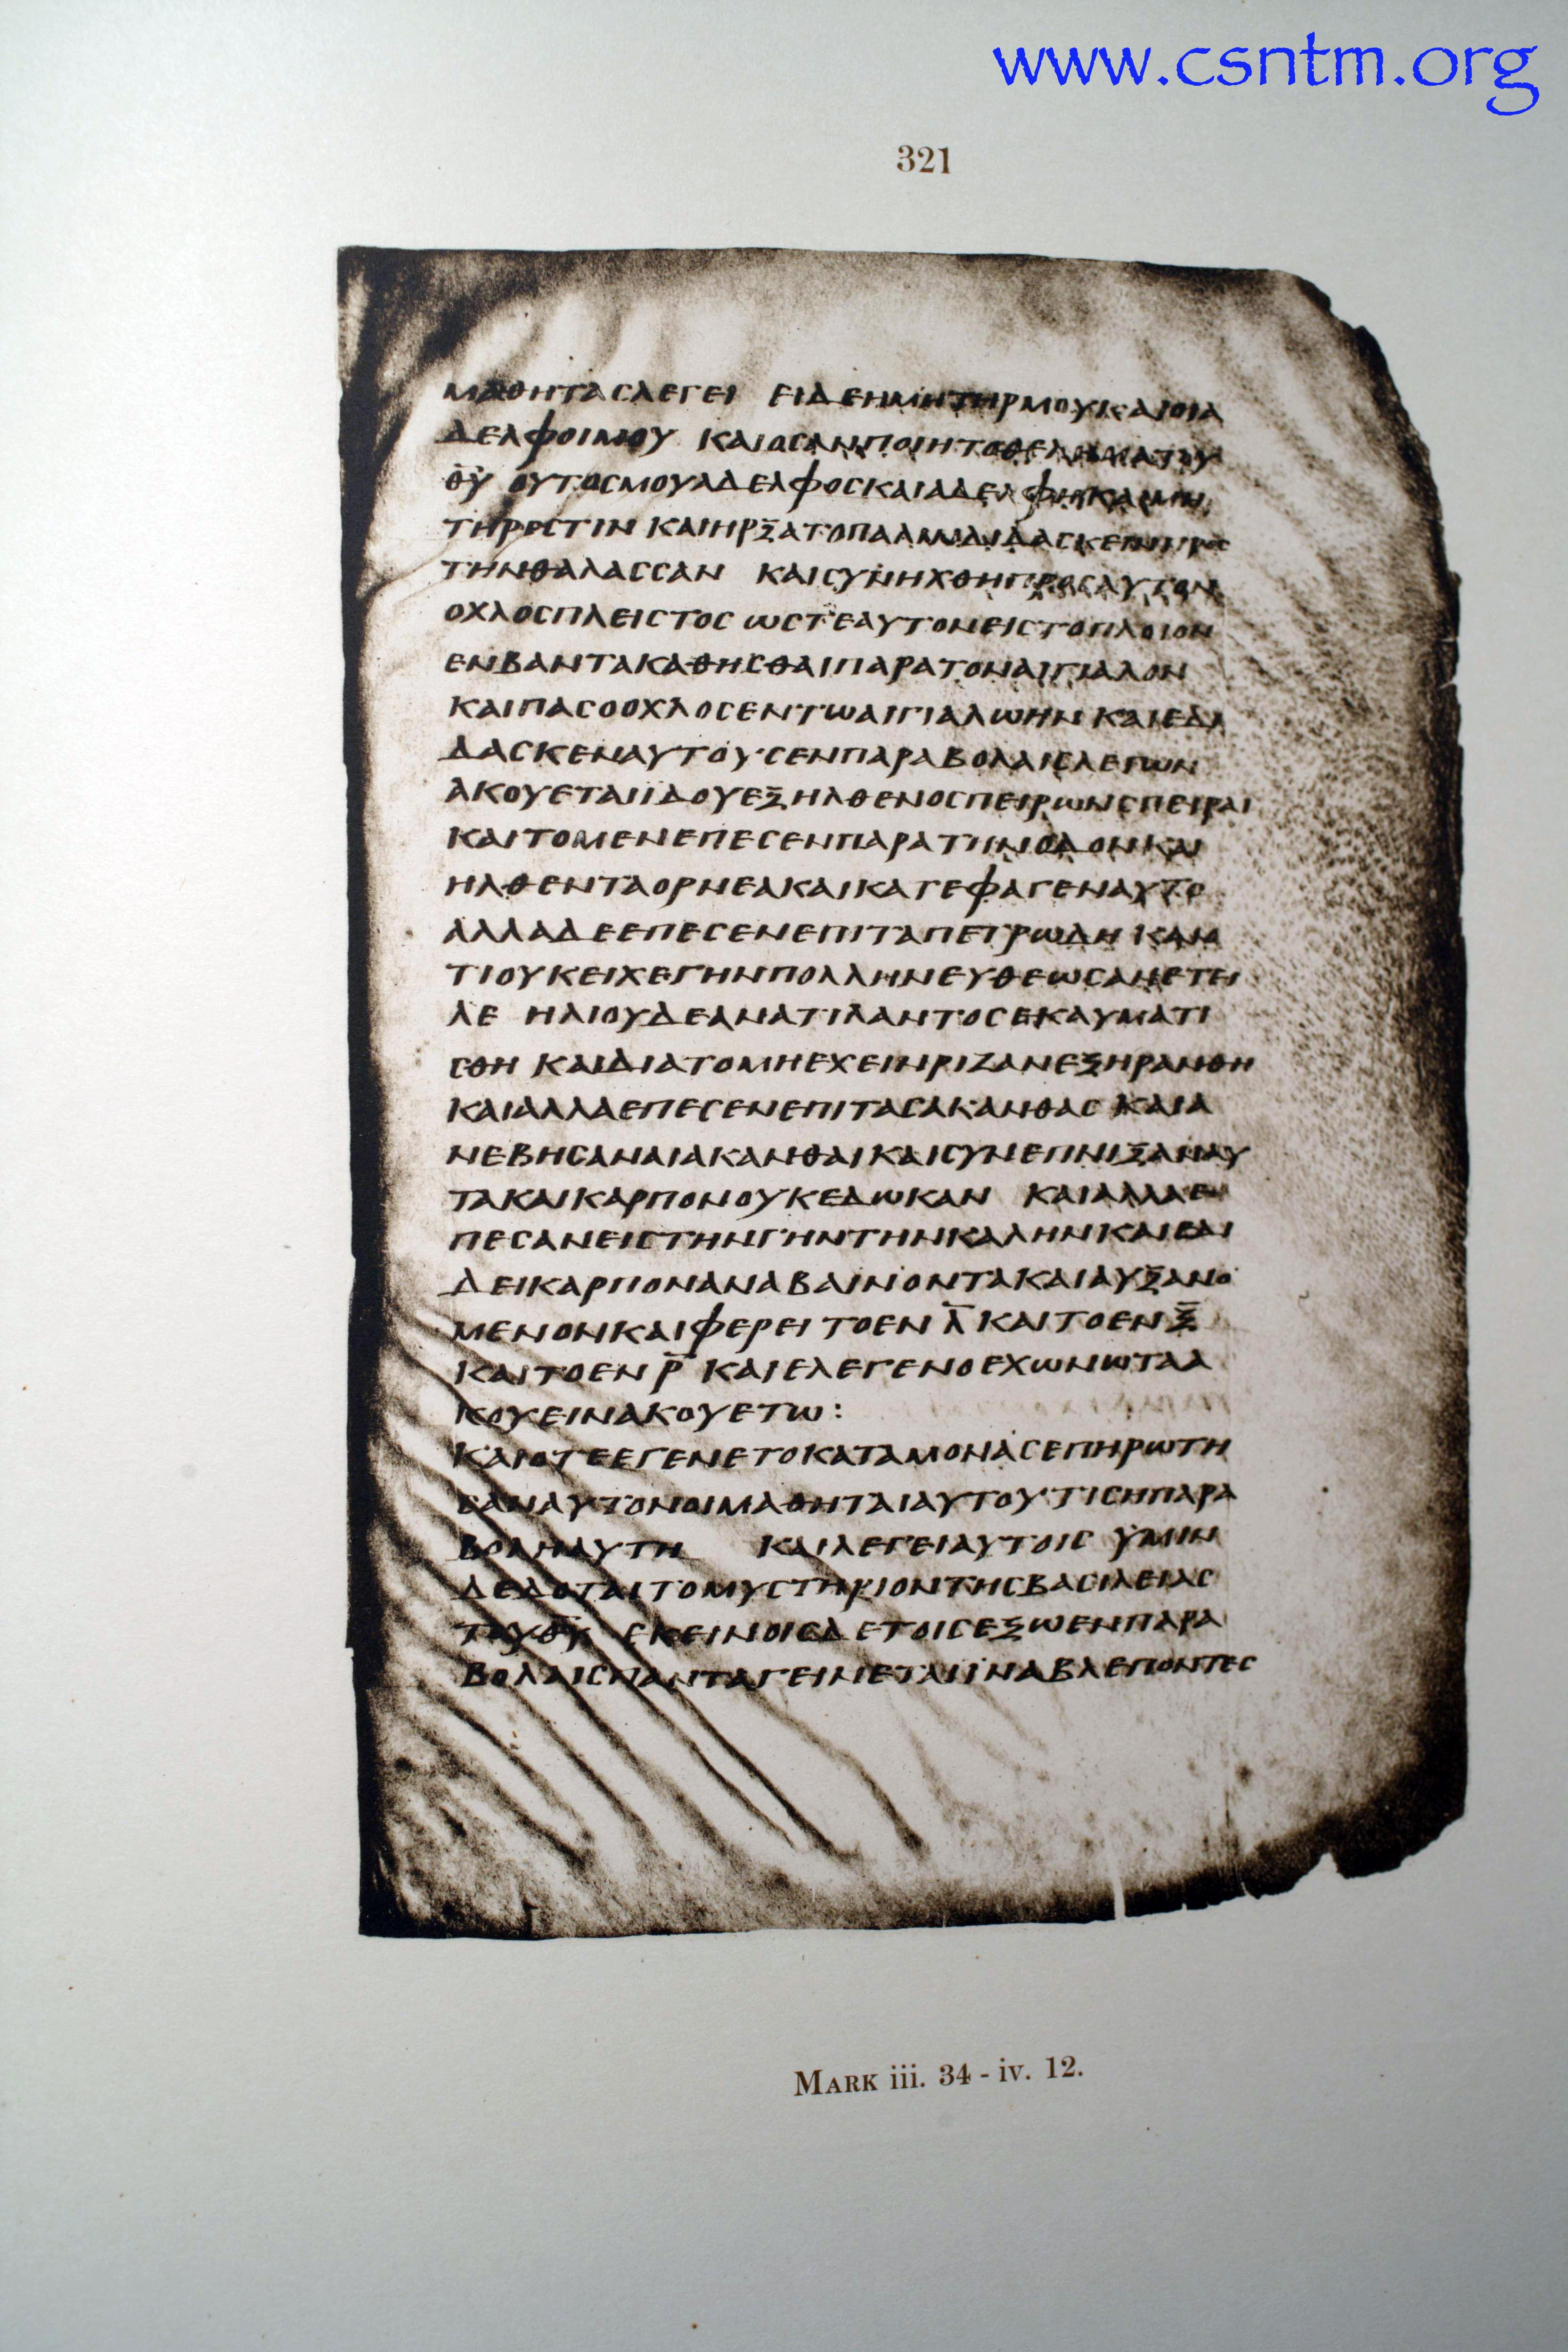 www.csntm.org
321
ΜΑΘΗΤΑСΛΕΓΕΙ ΕΙΔΕΗΜΗΤΗΡΜΟΥΚΑΙΟΙΑ
ΔΕΛΦΟΙΜΟΥ ΚΑΙΟСΑΝΠΟΙΗΤΟΘΕΛΗΜΑΤΟΥ
Θ̅Υ̅ ΟΥΤΟСΜΟΥΑΔΕΛΦΟСΚΑΙΑΔΕΛΦΗΚΑΙΜΗ
ΤΗΡΕСΤΙΝ ΚΑΙΗΡΞΑΤΟΠΑΛΙΝΔΙΔΑСΚΕΙΝΠΡΟС
ΤΗΝΘΑΛΑССΑΝ ΚΑΙСΥΝΗΧΘΗΠΡΟСΑΥΤΟΝ
ΟΧΛΟСΠΛΕΙСΤΟС ωСΤΕΑΥΤΟΝΕΙСΤΟΠΛΟΙΟΝ
ΕΝΒΑΝΤΑΚΑΘΗСΘΑΙΠΑΡΑΤΟΝΑΙΓΙΑΛΟΝ
ΚΑΙΠΑСΟΟΧΛΟСΕΝΤωΑΙΓΙΑΛωΗΝ ΚΑΙΕΔΙ
ΔΑСΚΕΝΑΥΤΟΥСΕΝΠΑΡΑΒΟΛΑΙСΛΕΓωΝ
ΑΚΟΥΕΤΑΙΪΔΟΥΕΞΗΛΘΕΝΟСΠΕΙΡωΝСΠΕΙΡΑΙ
ΚΑΙΤΟΜΕΝΕΠΕСΕΝΠΑΡΑΤΗΝΟΔΟΝΚΑΙ
ΗΛΘΕΝΤΑΟΡΝΕΑΚΑΙΚΑΤΕΦΑΓΕΝΑΥΤΟ
ΑΛΛΑΔΕΕΠΕСΕΝΕΠΙΤΑΠΕΤΡωΔΗ ΚΑΙΟ
ΤΙΟΥΚΕΙΧΕΓΗΝΠΟΛΛΗΝΕΥΘΕωСΑΝΕΤΕΙ
ΛΕ ΗΛΙΟΥΔΕΑΝΑΤΙΛΑΝΤΟСΕΚΑΥΜΑΤΙ
СΘΗ ΚΑΙΔΙΑΤΟΜΗΕΧΕΙΝΡΙΖΑΝΕΞΗΡΑΝΘΗ
ΚΑΙΑΛΛΑΕΠΕСΕΝΕΠΙΤΑСΑΚΑΝΘΑС ΚΑΙΑ
ΝΕΒΗСΑΝΑΙΑΚΑΝΘΑΙΚΑΙСΥΝΕΠΝΙΞΑΝΑΥ
ΤΑΚΑΙΚΑΡΠΟΝΟΥΚΕΔωΚΑΝ ΚΑΙΑΛΛΑΕ
ΠΕСΑΝΕΙСΤΗΝΓΗΝΤΗΝΚΑΛΗΝΚΑΙΕΔΙ
ΔΕΙΚΑΡΠΟΝΑΝΑΒΑΙΝΟΝΤΑΚΑΙΑΥΞΑΝΟ
ΜΕΝΟΝΚΑΙΦΕΡΕΙ ΤΟΕΝ Λ̅ ΚΑΙΤΟΕΝ Ξ̅
ΚΑΙΤΟΕΝ Ρ̅ ΚΑΙΕΛΕΓΕΝΟΕΧωΝωΤΑΑ
ΚΟΥΕΙΝΑΚΟΥΕΤω:
ΚΑΙΟΤΕΕΓΕΝΕΤΟΚΑΤΑΜΟΝΑСΕΠΗΡωΤΗ
СΑΝΑΥΤΟΝΟΙΜΑΘΗΤΑΙΑΥΤΟΥΤΙСΗΠΑΡΑ
ΒΟΛΗΑΥΤΗ ΚΑΙΛΕΓΕΙΑΥΤΟΙС ΫΜΙΝ
ΔΕΔΟΤΑΙΤΟΜΥСΤΗΡΙΟΝΤΗСΒΑСΙΛΕΙΑС
ΤΟΥΘ̅Υ̅ ΕΚΕΙΝΟΙСΔΕΤΟΙСΕΞωΕΝΠΑΡΑ
ΒΟΛΑΙСΠΑΝΤΑΓΕΙΝΕΤΑΙΪΝΑΒΛΕΠΟΝΤΕС
MARK iii. 34 - iv. 12.